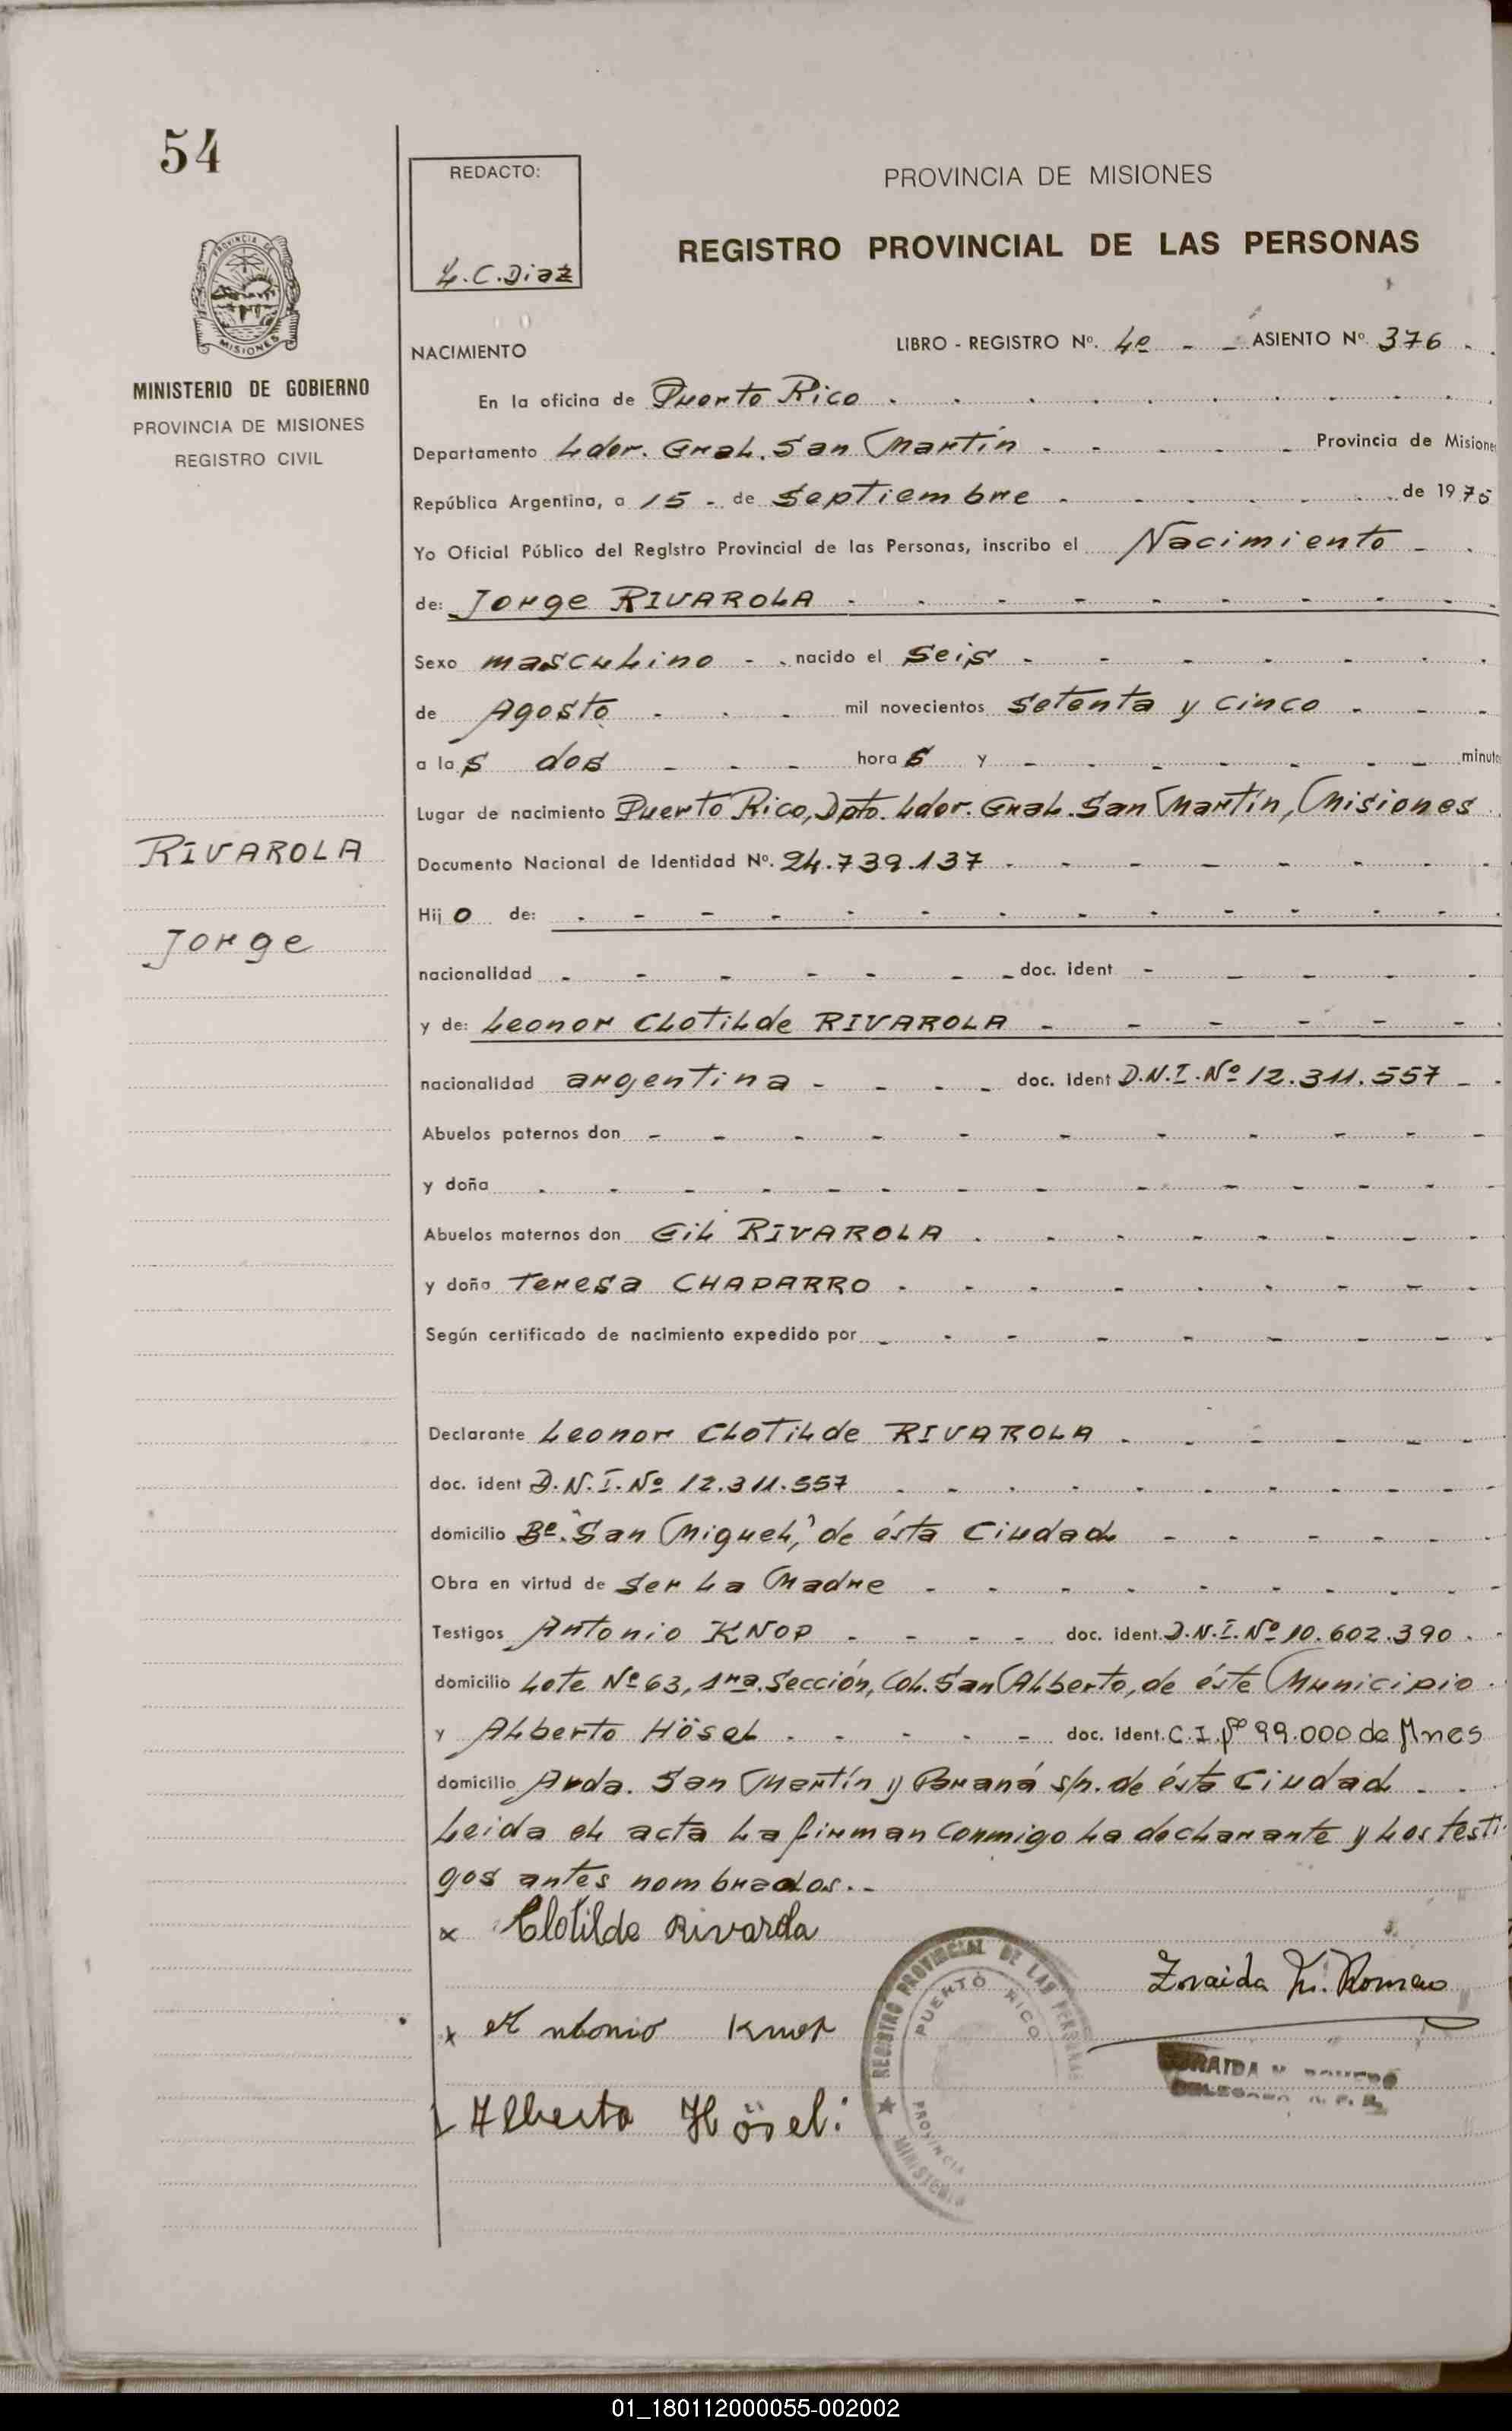 54
REDACTO:
L.C.Diaz
PROVINCIA DE MISIONES
REGISTRO PROVINCIAL DE LAS PERSONAS
PROVINCIA DE
MISIONES
MINISTERIO DE GOBIERNO
PROVINCIA DE MISIONES
REGISTRO CIVIL
NACIMIENTO
LIBRO - REGISTRO Nº. 4º - - ASIENTO Nº. 376 - .
En la oficina de Puerto Rico
Departamento Ldor. Gral. San Martín - - - - Provincia de Misiones
República Argentina, a 15 - de Septiembre - - - - de 1975
Yo Oficial Público del Registro Provincial de las Personas, inscribo el Nacimiento -
de: Jorge RIVAROLA
Sexo masculino - - nacido el Seis
de Agosto - - - mil novecientos Setenta y cinco - - -
a las dos - - - horas y - - - - minutos
Lugar de nacimiento Puerto Rico, Dpto. Ldor. Gral. San Martín, Misiones
RIVAROLA
Documento Nacional de Identidad Nº. 24.739.137
Hijo de:
Jorge
nacionalidad - - - - - - doc. ident - - - - -
y de: Leonor CLOTILde RIVAROLA - - - - - -
nacionalidad argentina - - - - doc. ident D.N.I.Nº 12.311.557 - -
Abuelos paternos don
y doña
Abuelos maternos don Gil RIVAROLA
y doña Teresa CHAPARRO
Según certificado de nacimiento expedido por
Declarante Leonor CLOTILde RIVAROLA
doc. ident D.N.I.Nº 12.311.557
domicilio Bº. "San Miguel," de ésta Ciudad
Obra en virtud de Ser La Madre
Testigos Antonio KNOP - - - - doc. ident. D.N.I.Nº 10.602.390 - -
domicilio Lote Nº 63, 1ra. Sección, Col. San Alberto, de éste Municipio.
y Alberto Hösel - - - - - doc. ident. C.I. Nº 99.000 de Mnes
domicilio Avda. San Martín y Paraná s/n. de ésta Ciudad - -
Leida el acta La firman Conmigo La declarante y Los testi-
gos antes nombrados.-
x Clotilde Rivarola
Zoraida N. Romero
x Antonio Knop
ZORAIDA N. ROMERO
DELEGADA R. P. P.
Alberto Hösel
REGISTRO PROVINCIAL DE LAS PERSONAS
PUERTO RICO
PROVINCIA
MINISTERIO
01_180112000055-002002